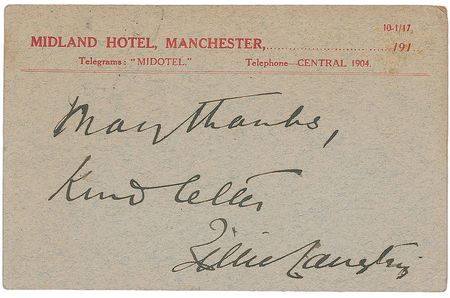 10-1/17
MIDLAND HOTEL, MANCHESTER,....................191
Telegrams: "MIDOTEL." Telephone—CENTRAL 1904.
Many thanks,
Kind letter
Lillie Langtry